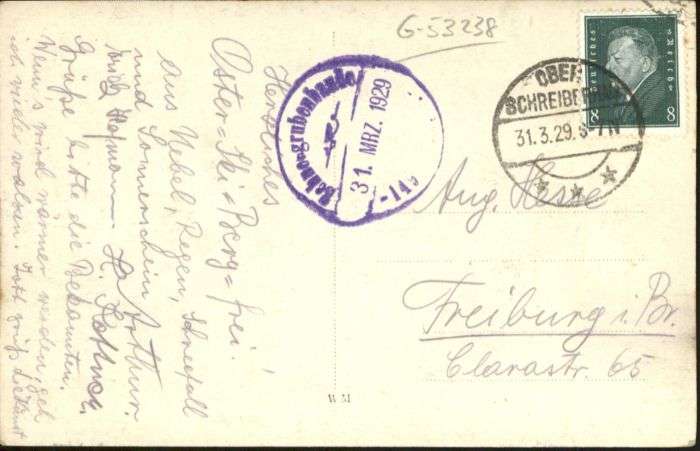 G-53238
Deutsches Reich
8 8
OBER
SCHREIBERHAU
31.3.29.
Schneegrubenbaude
31. MRZ. 1929
Herzliches
Oster=Ski=Berg=frei!
aus Nebel, Regen, Schneefall
und Sonnenschein Arthur.
Grüße bitte die Bekannten.
Wenn's wird wärmer werden, geh
ich wieder
Aug. Hesse
Freiburg i. Br.
Clarastr. 65
W M